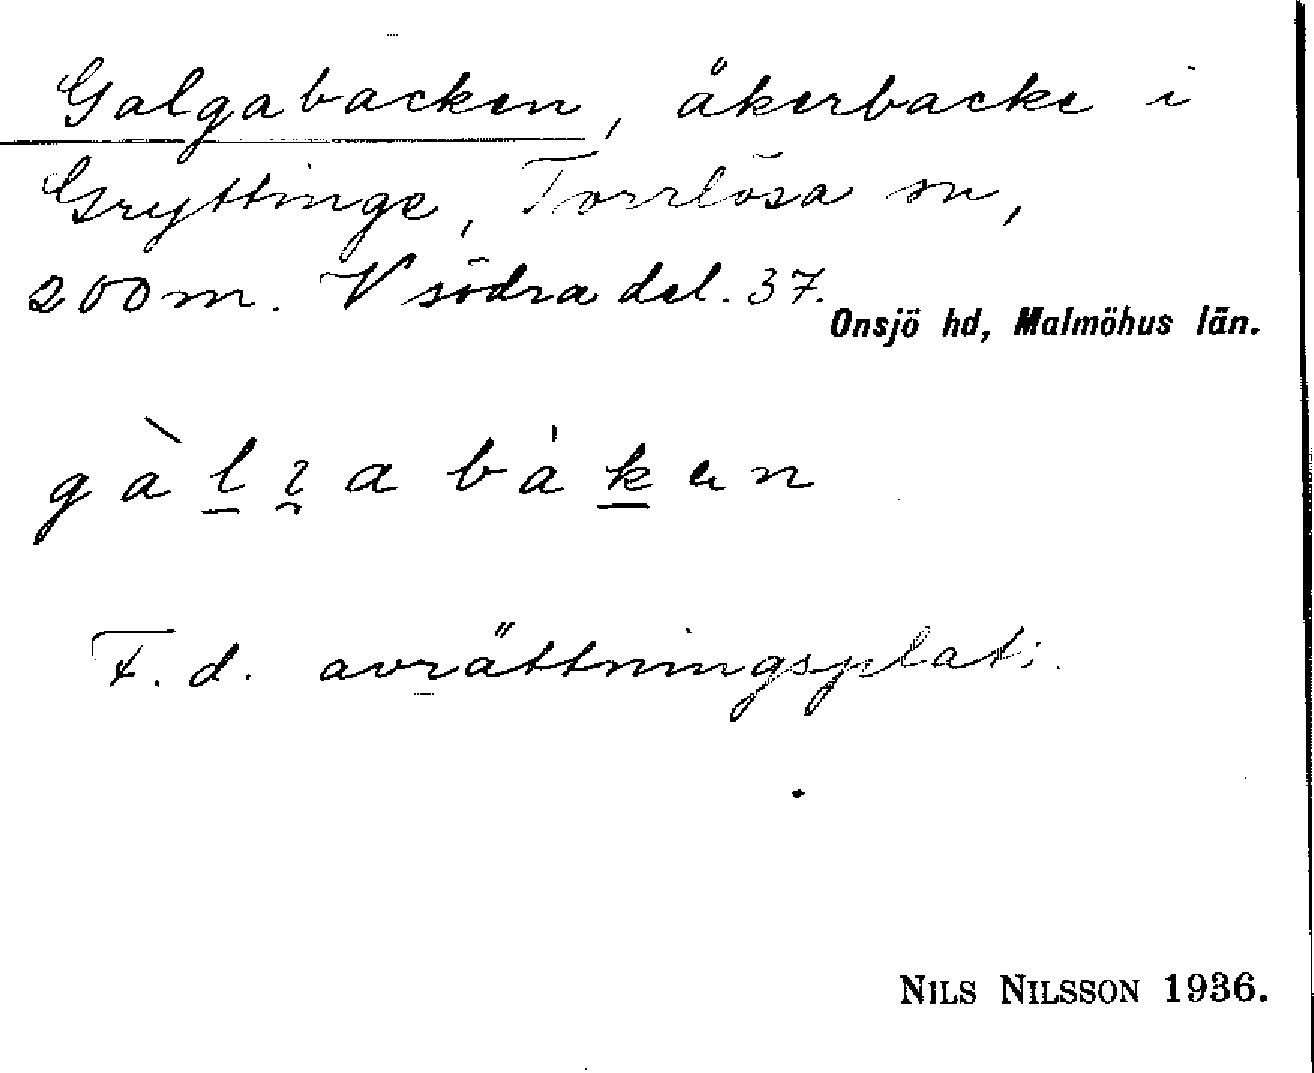 Galgabacken, åkerbacke i
Gryttinge, Torrlösa sn,
200 m. V södra del. 37.
Onsjö hd, Malmöhus län.
F. d. avrättningsplats.
NILS NILSSON 1936.